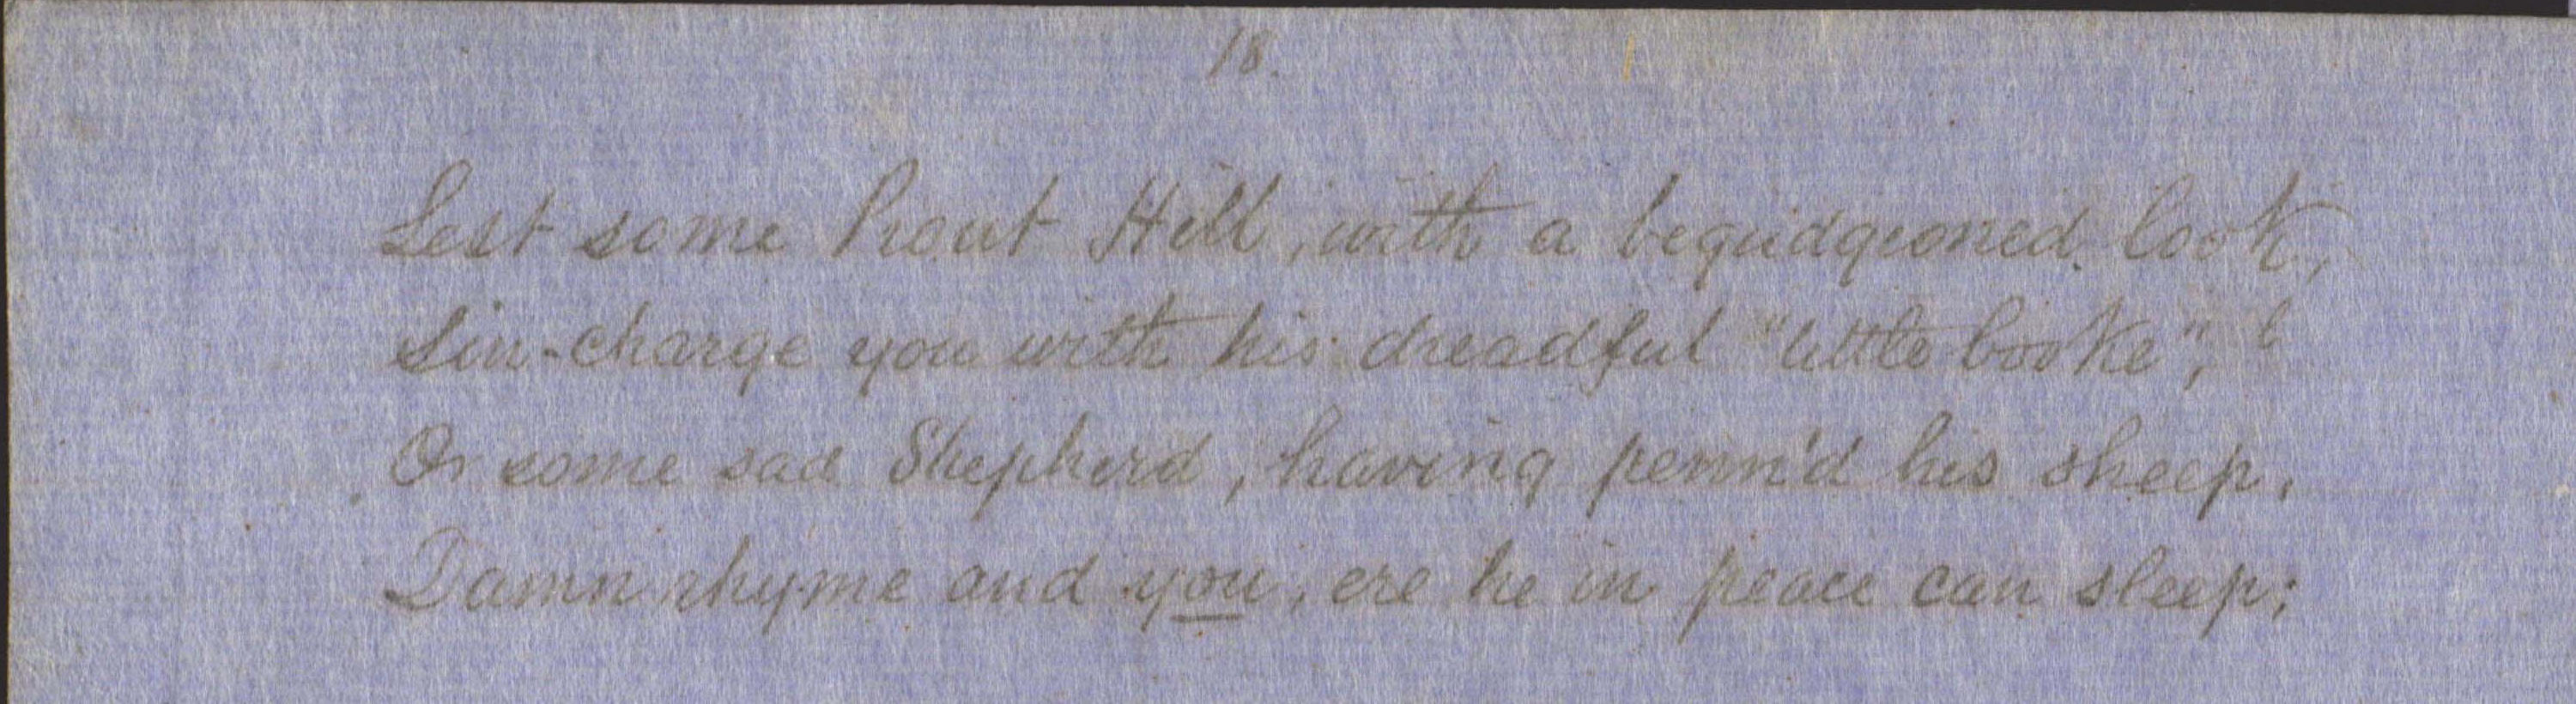 18.
Lest some Prout Hill, with a begudgeoned look,
Sin-charge you with his dreadful "little booke", b
Or some sad Shepherd, having penn'd his sheep,
Damn rhyme and you, ere he in peace can sleep;